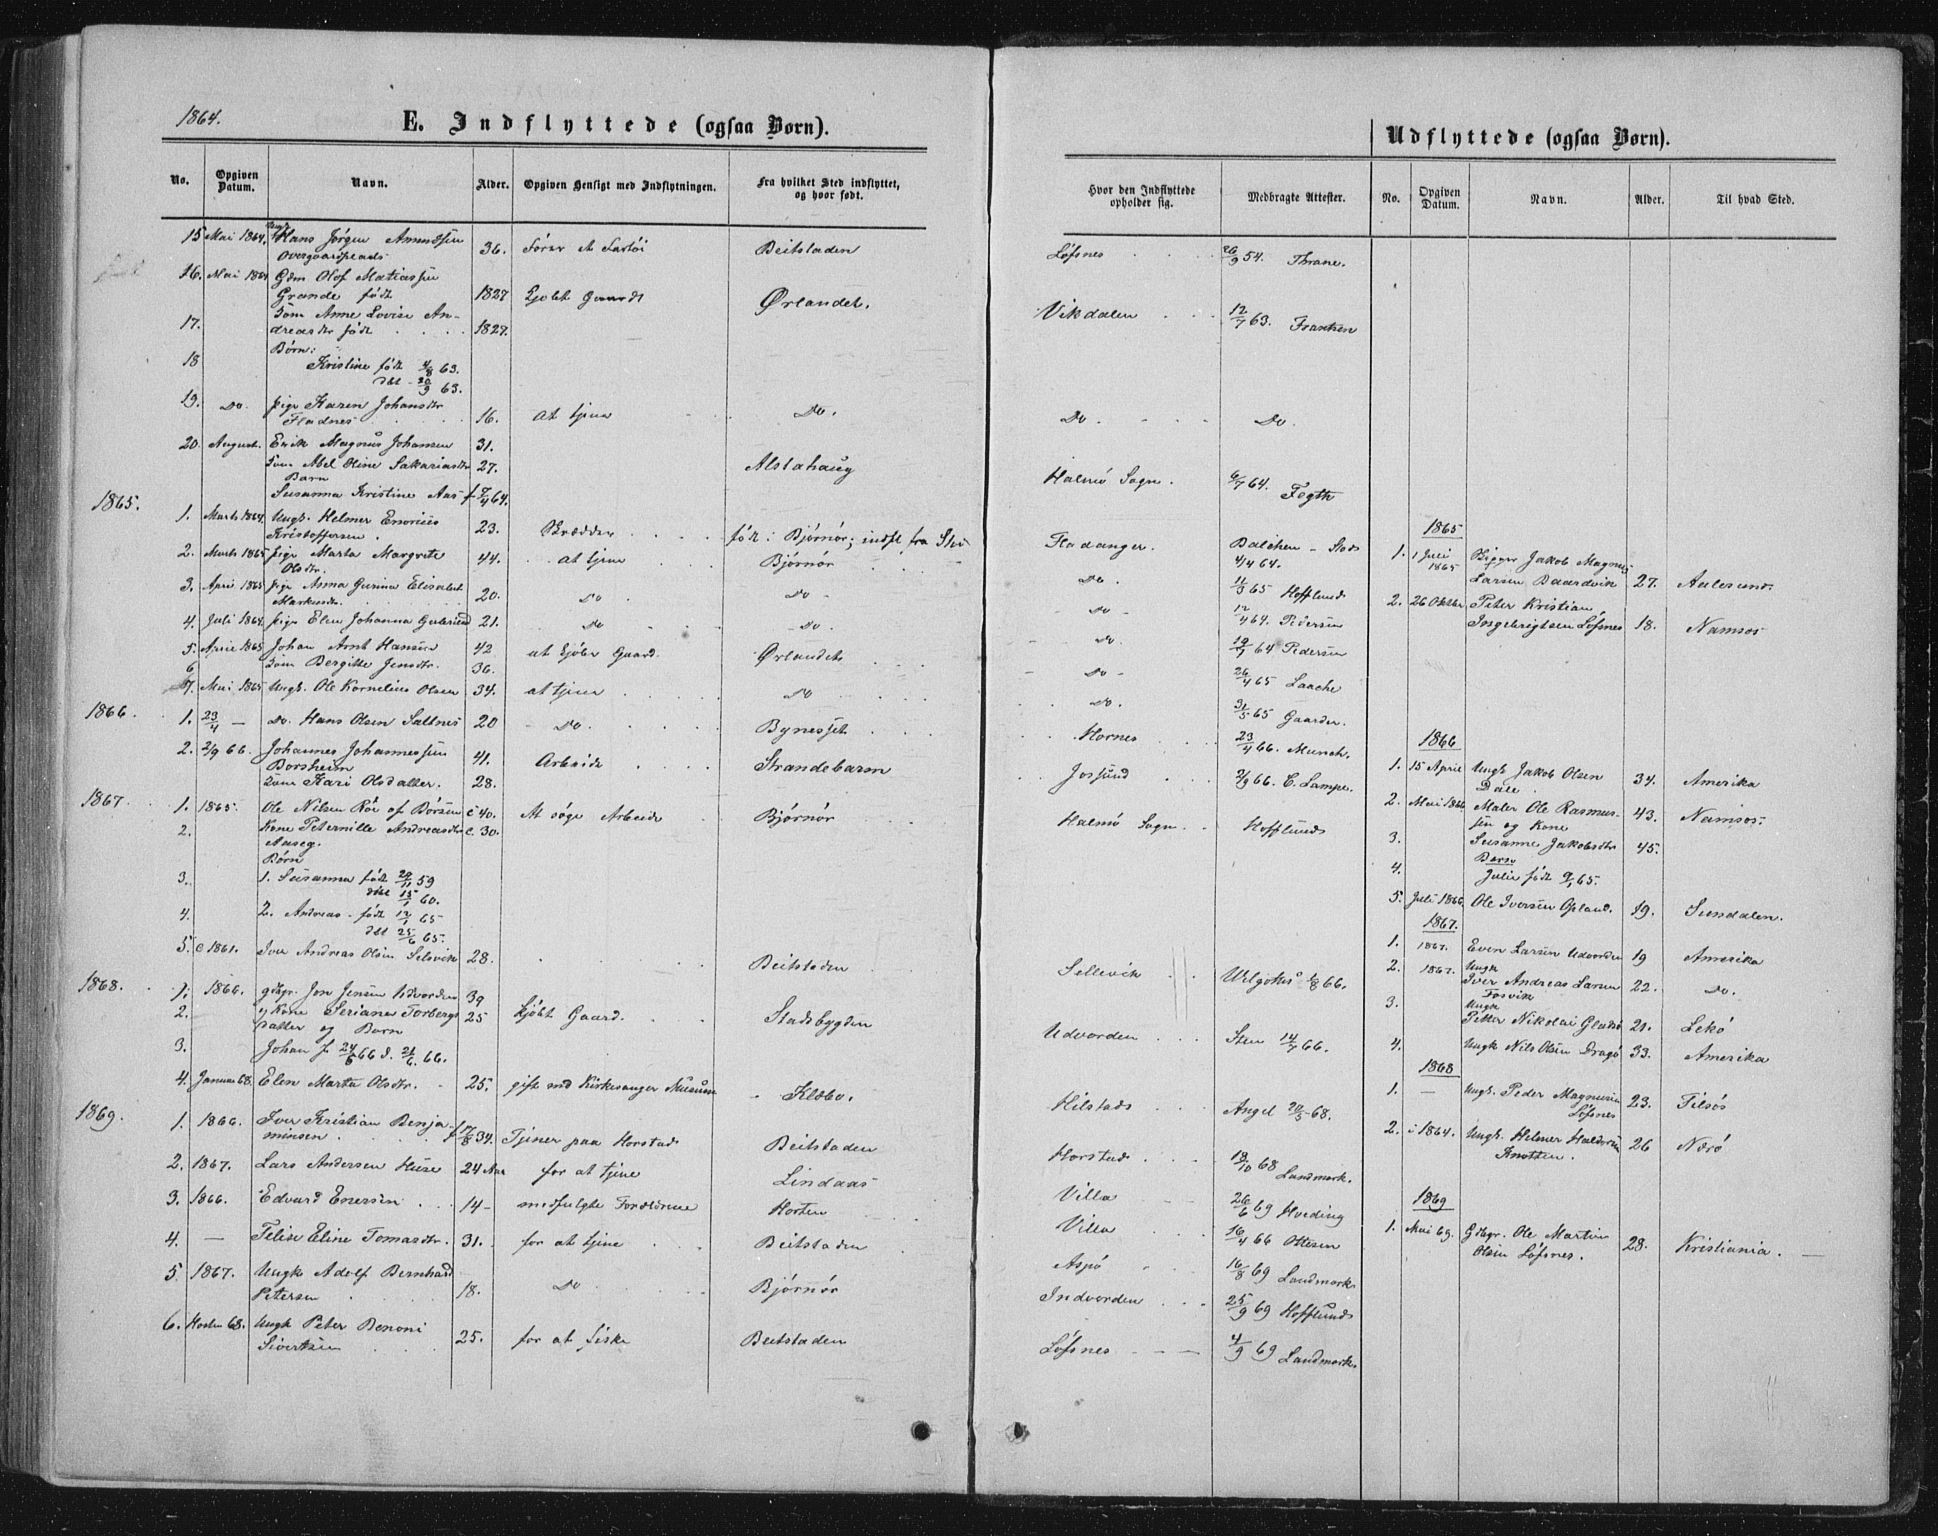 1864.
E. Indflyttede (ogsaa Børn).
No. Opgiven Datum. Navn. Alder. Opgiven Hensigt med Indflytningen. Fra hvilket Sted indflyttet, og hvor født.
15 Mai 1864. Hans Jørgen Amundsen 36. Fører et Fartøi Beitstaden
16. Mai 1864 Gdm Olof Matiassen
Grande født 1827 Kjøbt Gaard Ørlandet.
17. Anne Lovise An-
dreasdtr født 1827.
Børn:
18 Kristine født 4/8 63.
død 20/9 63.
19. Do. pige Karen Johansdtr
Fladnes 16. at tjene Do.
20. August. Erik Magnus Johansen 31.
Abel Oline Sakariasdtr 27. Alstahaug
Barn
Susanna Kristine Aas f 7/4 64.
1865.
1. Marts 1864. Ungk. Helmer Enorius
Kristoffersen. 23. Skrædder født i Bjørnør; indfl fra Stod
2. Marts 1865 pige Marta Margrete
Olsdtr. 44. at tjene Bjørnør
3. April 1865 pige Anna Gurina Elisabet
Markusdtr. 20. Do Do
4. Juli 1864. pige Elen Johanna 21. Do Do.
5. April 1865 Johan Arnt Hansen 42 at kjøbe Gaard Ørlandet
6 Bergitte Jensdtr. 36.
7. Mai 1865 Ungk. Ole Kornelius Olsen 34. at tjene Do
1866.
1. 23/4 — Do. Hans Olsen Saltnes 20 Do. Bynesset
2. 2/9 66. Johannes Johannessen
Borsheim 41. Arbeide Strandebarm
Kari Olsdatter. 28.
1867.
1. 1865. Ole Nilsen Røe af Børsen c 40. At søge Arbeide Bjørnør
2. Kone Peternille Andreasdtr c. 30.
Aaseg.
Børn
3. 1. Susanna født 20/11 59
død 15/1 60.
4. 2. Andreas - født 12/1 65
død 25/6 65.
5. c 1861. Iver Andreas Olsen Selsvik 28. Beitstaden
1868.
1. 1866. gdbr. Jon Jensen Udvorden 39
2. og Kone Seriane Torbergs 25 kjøbt Gaard. Stadsbygden
datter og Barn
3. Johan f. 24/5 66 d. 21/6 66.
4. Januar 68. Elen Marta Olsdtr. 25. gift med Kirkesanger Klæbo.
1869.
1. 1866. Iver Kristian Benja-
minsen f 17/8 34. Tjener paa Horstad Beitstaden
2. 1867. Lars Andersen Huse 24 Aar for at tjene Lindaas
3. 1866. Edvard Enersen 14 medfulgte Forældrene Horten
4. — Felise Eline Tomasdtr. 31. for at tjene Beitstaden
5 1867. Ungk Adolf Bernhard
Petersen 18. Do Bjørnør
6. Høsten 68. Ungk Peter Benoni
Sivertsen 25. for at fiske Beitstaden
Udflyttede (ogsaa Børn).
Hvor den Indflyttede opholder sig. Medbragte Attester. No. Opgiven Datum. Navn. Alder. Til hvad Sted.
Løfsnes 26/9 54. Thrane.
Vikdalen 12/7 63. Frantzen
Do. Do.
Halmø Sogn 6/7 64. Fegth
Fladanger. Balchen - Stod
4/4 64.
1865
1. 1 Juli 1865 Jakob Magnus
Larsen Baardvik 27. Aalesund.
Do. 11/3 65 Hofflund
2. 26 Oktbr Peter Kristian
Ingebrigtsen Løfsnes 18. Namsos
Do 12/4 64. Pedersen
Do 19/7 64 Pedersen
Do 26/4 65 Laache
Do. 31/5 65 Gaarder.
Hornes 23/4 66. Munch.
1866
1. 15 April Ungk Jakob Olsen
Dale 34. Amerika
Jossund 2/9 66. C. Lampe.
2. Mai 1866 Maler Ole Rasmus-
sen og Kone 43. Namsos.
Halmø Sogn Hofflund
3. Susanne Jakobsdtr 45.
4. Barn
Julie født 9/1 65.
5. Juli 1866. Ole Iversen Opland. 19. Sundalen.
1867.
1. 1867. Even Larsen Udvorden 19 Amerika
Sellevik Welgothe 66.
2. 1867. Ungk Iver Andreas Larsen
Fosvik 22. Do.
3. Ungk Petter Nikolai Gladsø 21. Lekø
Udvorden Steen 14/7 66.
4. Ungk Nils Olsen Dragø 33. Amerika
1868
1. — Ungk. Peder Magnusen
Løfsnes 23. Tilsøs
Hilstad Angel 20/5 68.
2. i 1864. Ungk. Helmer Haldorsen
Knotten. 26 Nærø
Horstad 18/10 68 Landmark.
Villa 26/6 69 Hveding
1869
Villa 16/4 66 Ottesen
1. Mai 69. Gdbgr. Ole Martin
Olsen Løfsnes. 28. Kristiania.
Aspø 16/8 69 Landmark
Indvorden 25/9 69 Hofflund
Løfsnes 4/9 69 Landmark